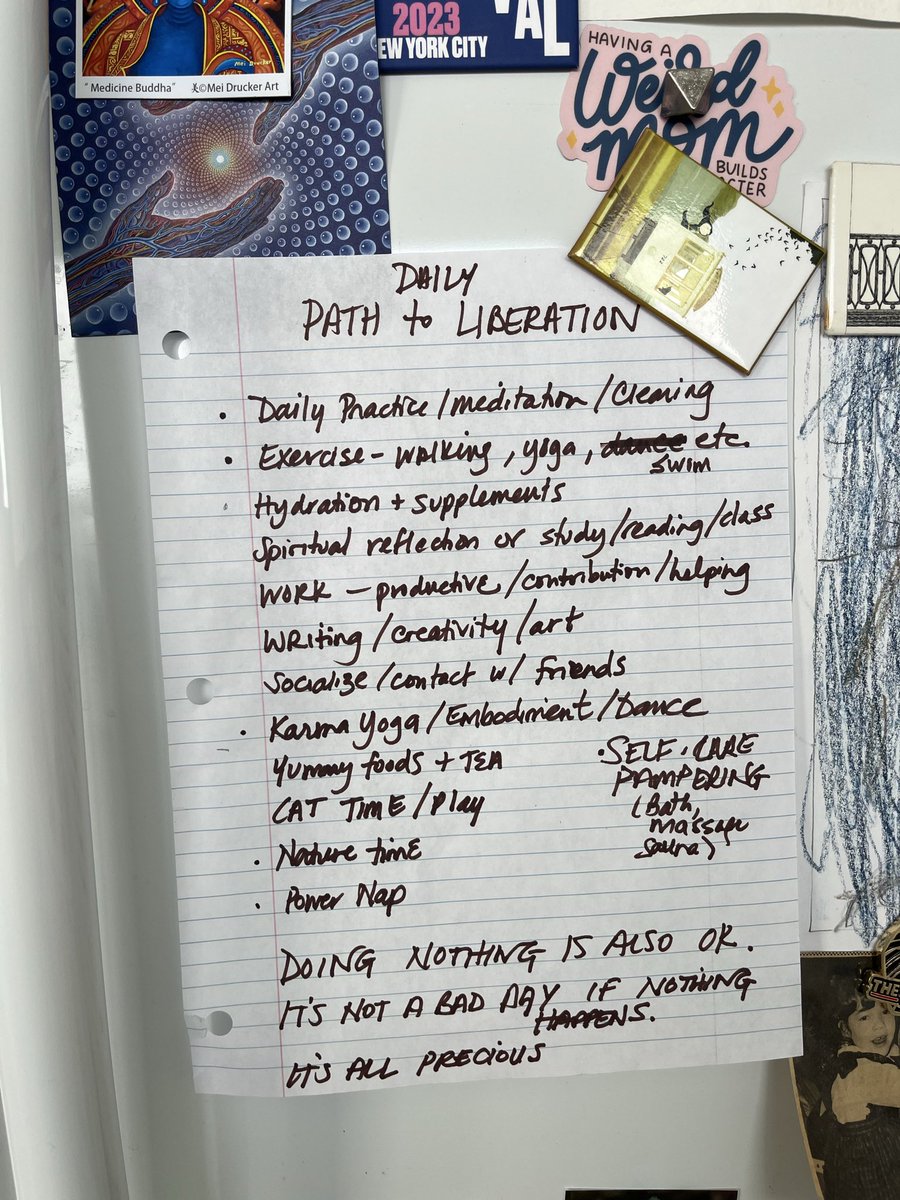 "Medicine Buddha" ©Mei Drucker Art
2023
NEW YORK CITY
AL
HAVING A
Weird
mom
BUILDS
DAILY
PATH to LIBERATION
• Daily Practice/meditation/Clearing
• Exercise - WALKING, yoga, dance etc.
SWIM
Hydration + supplements
Spiritual reflection or study/reading/class
WORK - productive/contribution/helping
WRiting/creativity/art
Socialize/contact w/ friends
• Karma Yoga/Embodiment/Dance
Yummy foods + TEA
CAT TIME/Play
• Nature time
• Power Nap
• SELF-CARE
PAMPERING
(Bath,
massage
sauna)
DOING NOTHING IS ALSO OK.
IT'S NOT A BAD DAY IF NOTHING
HAPPENS.
IT'S ALL PRECIOUS
THE